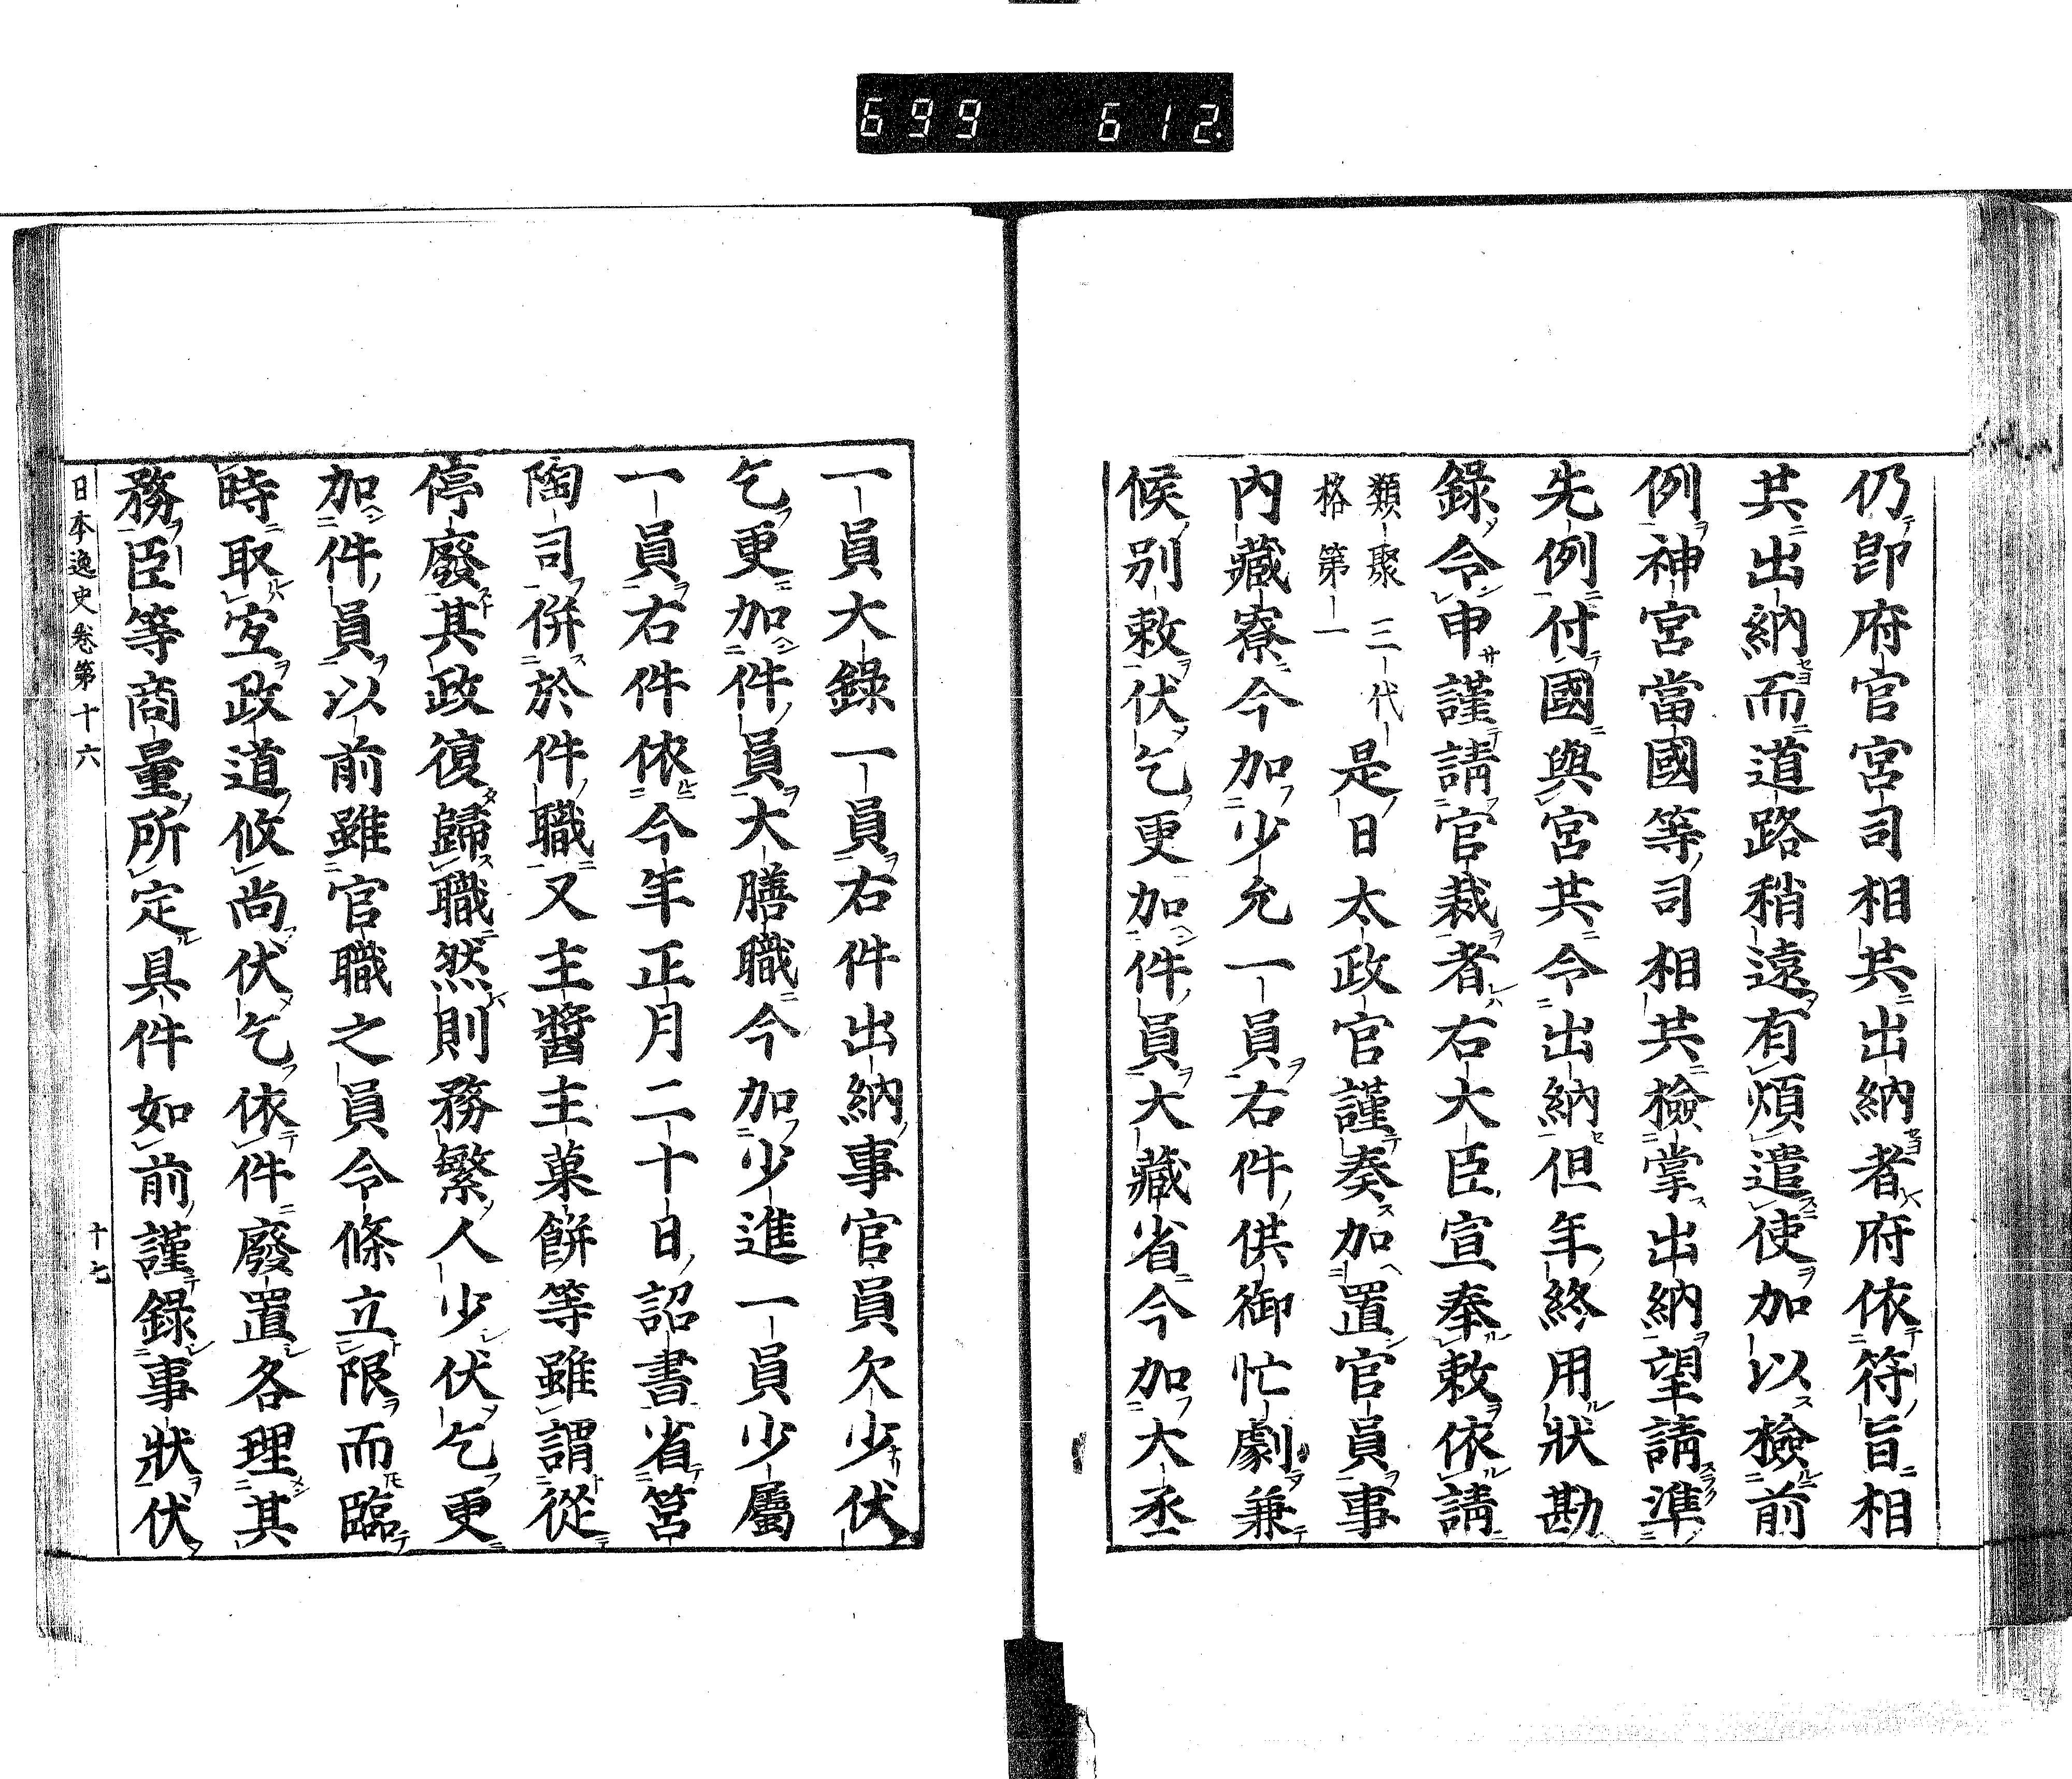 699 612
仍卽府官宮司相共出納者府依符旨相
共出納而道路稍遠有煩遣使加以檢前
例神宮當國等司相共檢掌出納望請準
先例付國與宮共令出納但年終用狀勘
錄令申謹請官裁者右大臣宣奉敕依請
類聚三代
格第一
是日太政官謹奏加置官員事
內藏寮今加少允一員右件供御忙劇兼
候別敕伏乞更加件員大藏省今加大丞
一員大錄一員右件出納事官員欠少伏
乞更加件員大膳職今加少進一員少屬
一員右件依今年正月二十日詔書省筥
陶司併於件職又主醬主菓餅等雖謂從
停廢其政復歸職然則務繁人少伏乞更
加件員以前雖官職之員令條立限而臨
時取宐政道攸尚伏乞依件廢置各理其
務臣等商量所定具件如前謹錄事狀伏
日本逸史卷第十六
十七